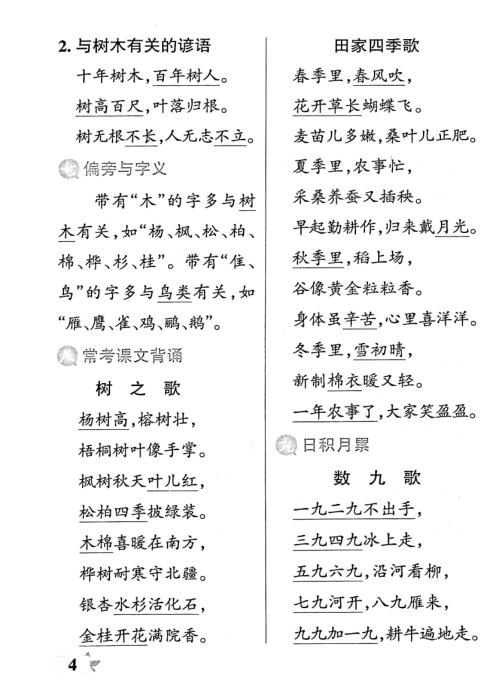 2. 与树木有关的谚语
十年树木,百年树人。
树高百尺,叶落归根。
树无根不长,人无志不立。
七 偏旁与字义
带有“木”的字多与树
木有关,如“杨、枫、松、柏、
棉、桦、杉、桂”。带有“隹、
鸟”的字多与鸟类有关,如
“雁、鹰、雀、鸡、鹂、鹅”。
八 常考课文背诵
树之歌
杨树高,榕树壮,
梧桐树叶像手掌。
枫树秋天叶儿红,
松柏四季披绿装。
木棉喜暖在南方,
桦树耐寒守北疆。
银杏水杉活化石,
金桂开花满院香。
田家四季歌
春季里,春风吹,
花开草长蝴蝶飞。
麦苗儿多嫩,桑叶儿正肥。
夏季里,农事忙,
采桑养蚕又插秧。
早起勤耕作,归来戴月光。
秋季里,稻上场,
谷像黄金粒粒香。
身体虽辛苦,心里喜洋洋。
冬季里,雪初晴,
新制棉衣暖又轻。
一年农事了,大家笑盈盈。
九 日积月累
数九歌
一九二九不出手,
三九四九冰上走,
五九六九,沿河看柳,
七九河开,八九雁来,
九九加一九,耕牛遍地走。
4